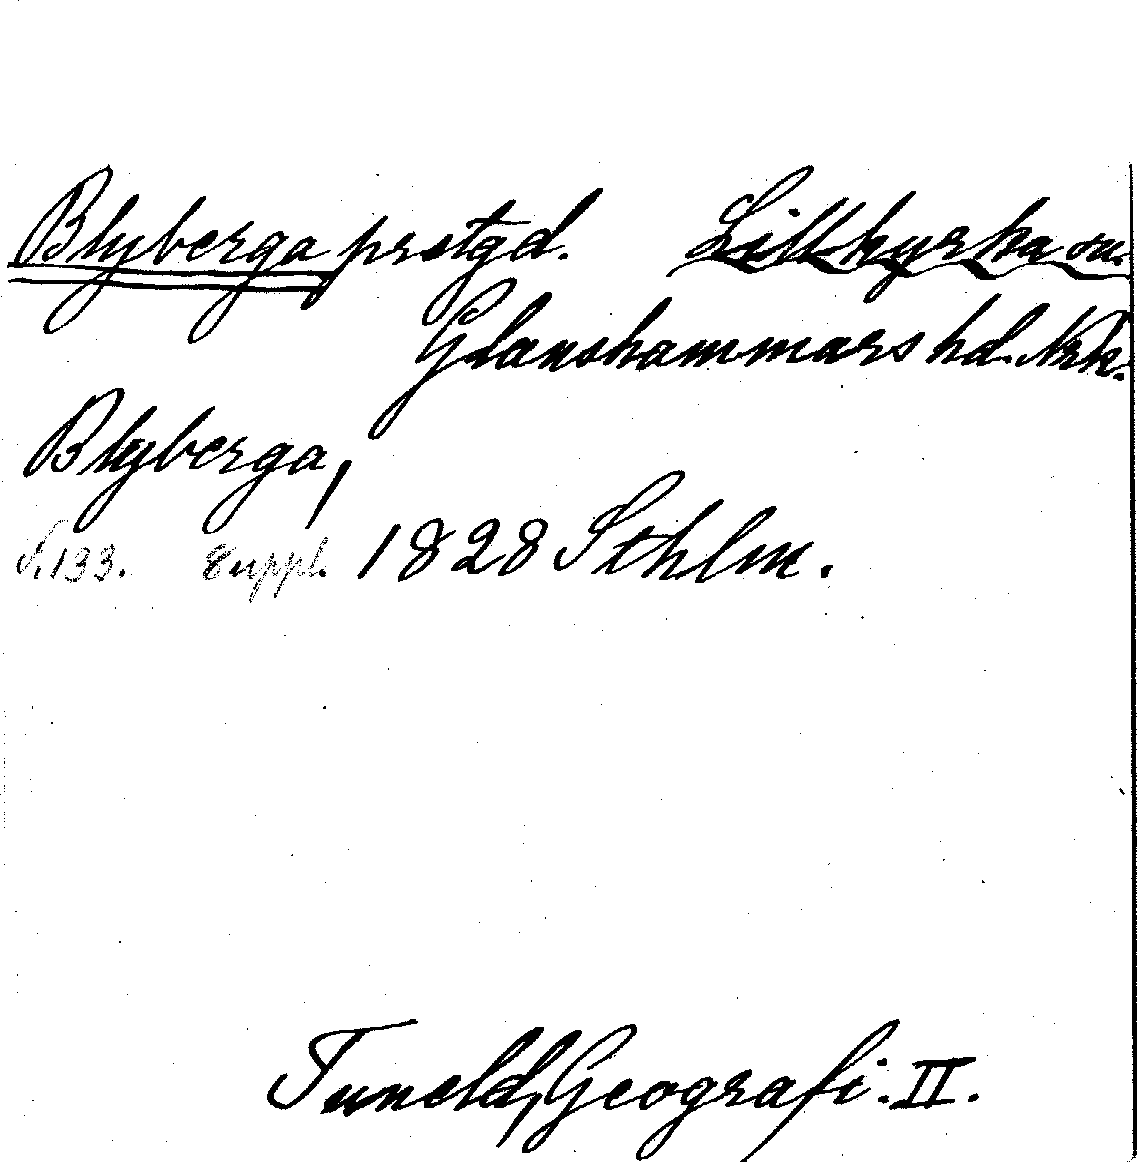 Blyberga prstgd. Lillkyrka sn.
Glanshammars hd. Nrk.
Blyberga,
S. 133. 8 uppl. 1828 Sthlm.
Tuneld, Geografi. II.